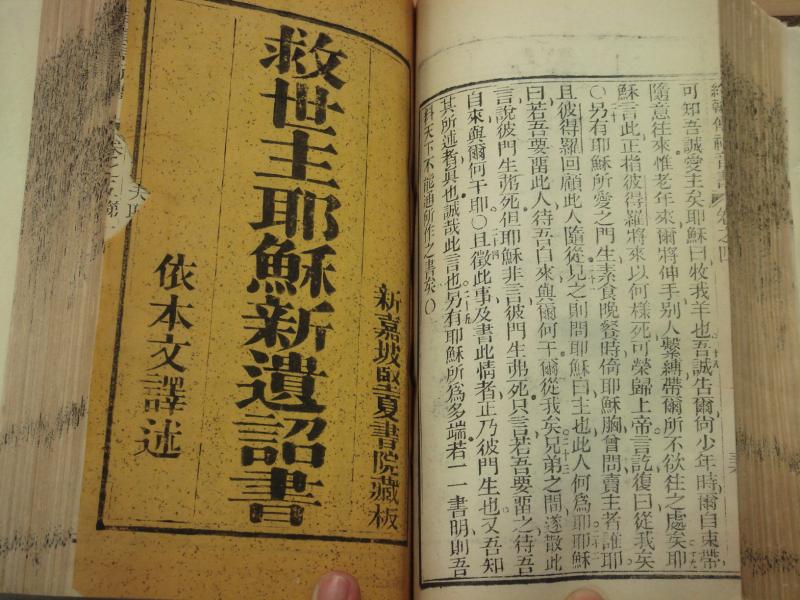 約翰傳福音書 卷之四
可知吾誠愛主矣耶穌曰牧我羊也吾誠告爾尙少年時爾自束帶
隨意往來惟老年來爾將伸手別人繫縛帶爾所不欲往之處矣耶
穌言此正指彼得羅將來以何樣死可榮歸上帝言訖復曰從我矣
○另有耶穌所愛之門生素食晚餐時倚耶穌胸曾問賣主者誰耶
且彼得羅回顧此人隨從見之則問耶穌曰主也此人何爲耶耶穌
曰若吾要畱此人待吾自來與爾何干爾從我矣兄弟之間遂散此
言說彼門生弗死但耶穌非言彼門生弗死只言若吾要畱之待吾
自來與爾何干耶○且徵此事及書此情者正乃彼門生也又吾知
其所述者眞也誠哉此言也另有耶穌所爲多端若一一書明則吾
料天下不能通所作之書矣○
新嘉坡堅夏書院藏板
救世主耶穌新遺詔書
依本文譯述